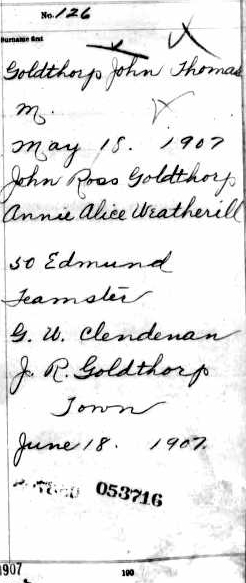 No. 126
Surname first
Goldthorp John Thomas
M.
May 18. 1907
John Ross Goldthorp
Annie Alice Weatherill
50 Edmund
Teamster
G. W. Clendenan
J. R. Goldthorp
Town
June 18. 1907.
053716
1907
100